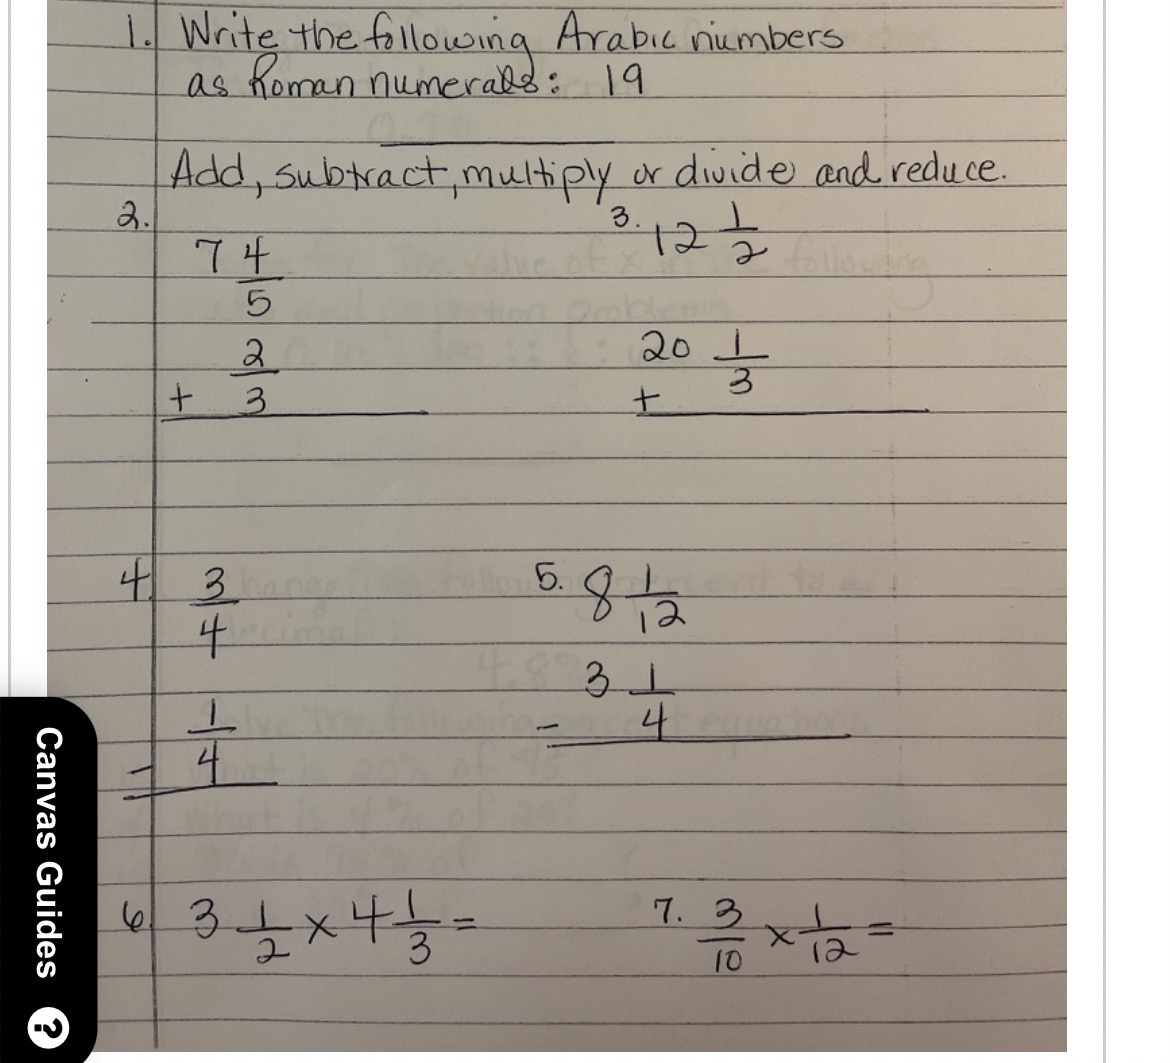 1. Write the following Arabic numbers
as Roman numerals: 19
Add, subtract, multiply or divide and reduce.
2. 7 4/5 + 2/3
3. 12 1/2 + 20 1/3
4. 3/4 - 1/4
5. 8 1/12 - 3 1/4
6. 3 1/2 x 4 1/3 =
7. 3/10 x 1/12 =
Canvas Guides ?